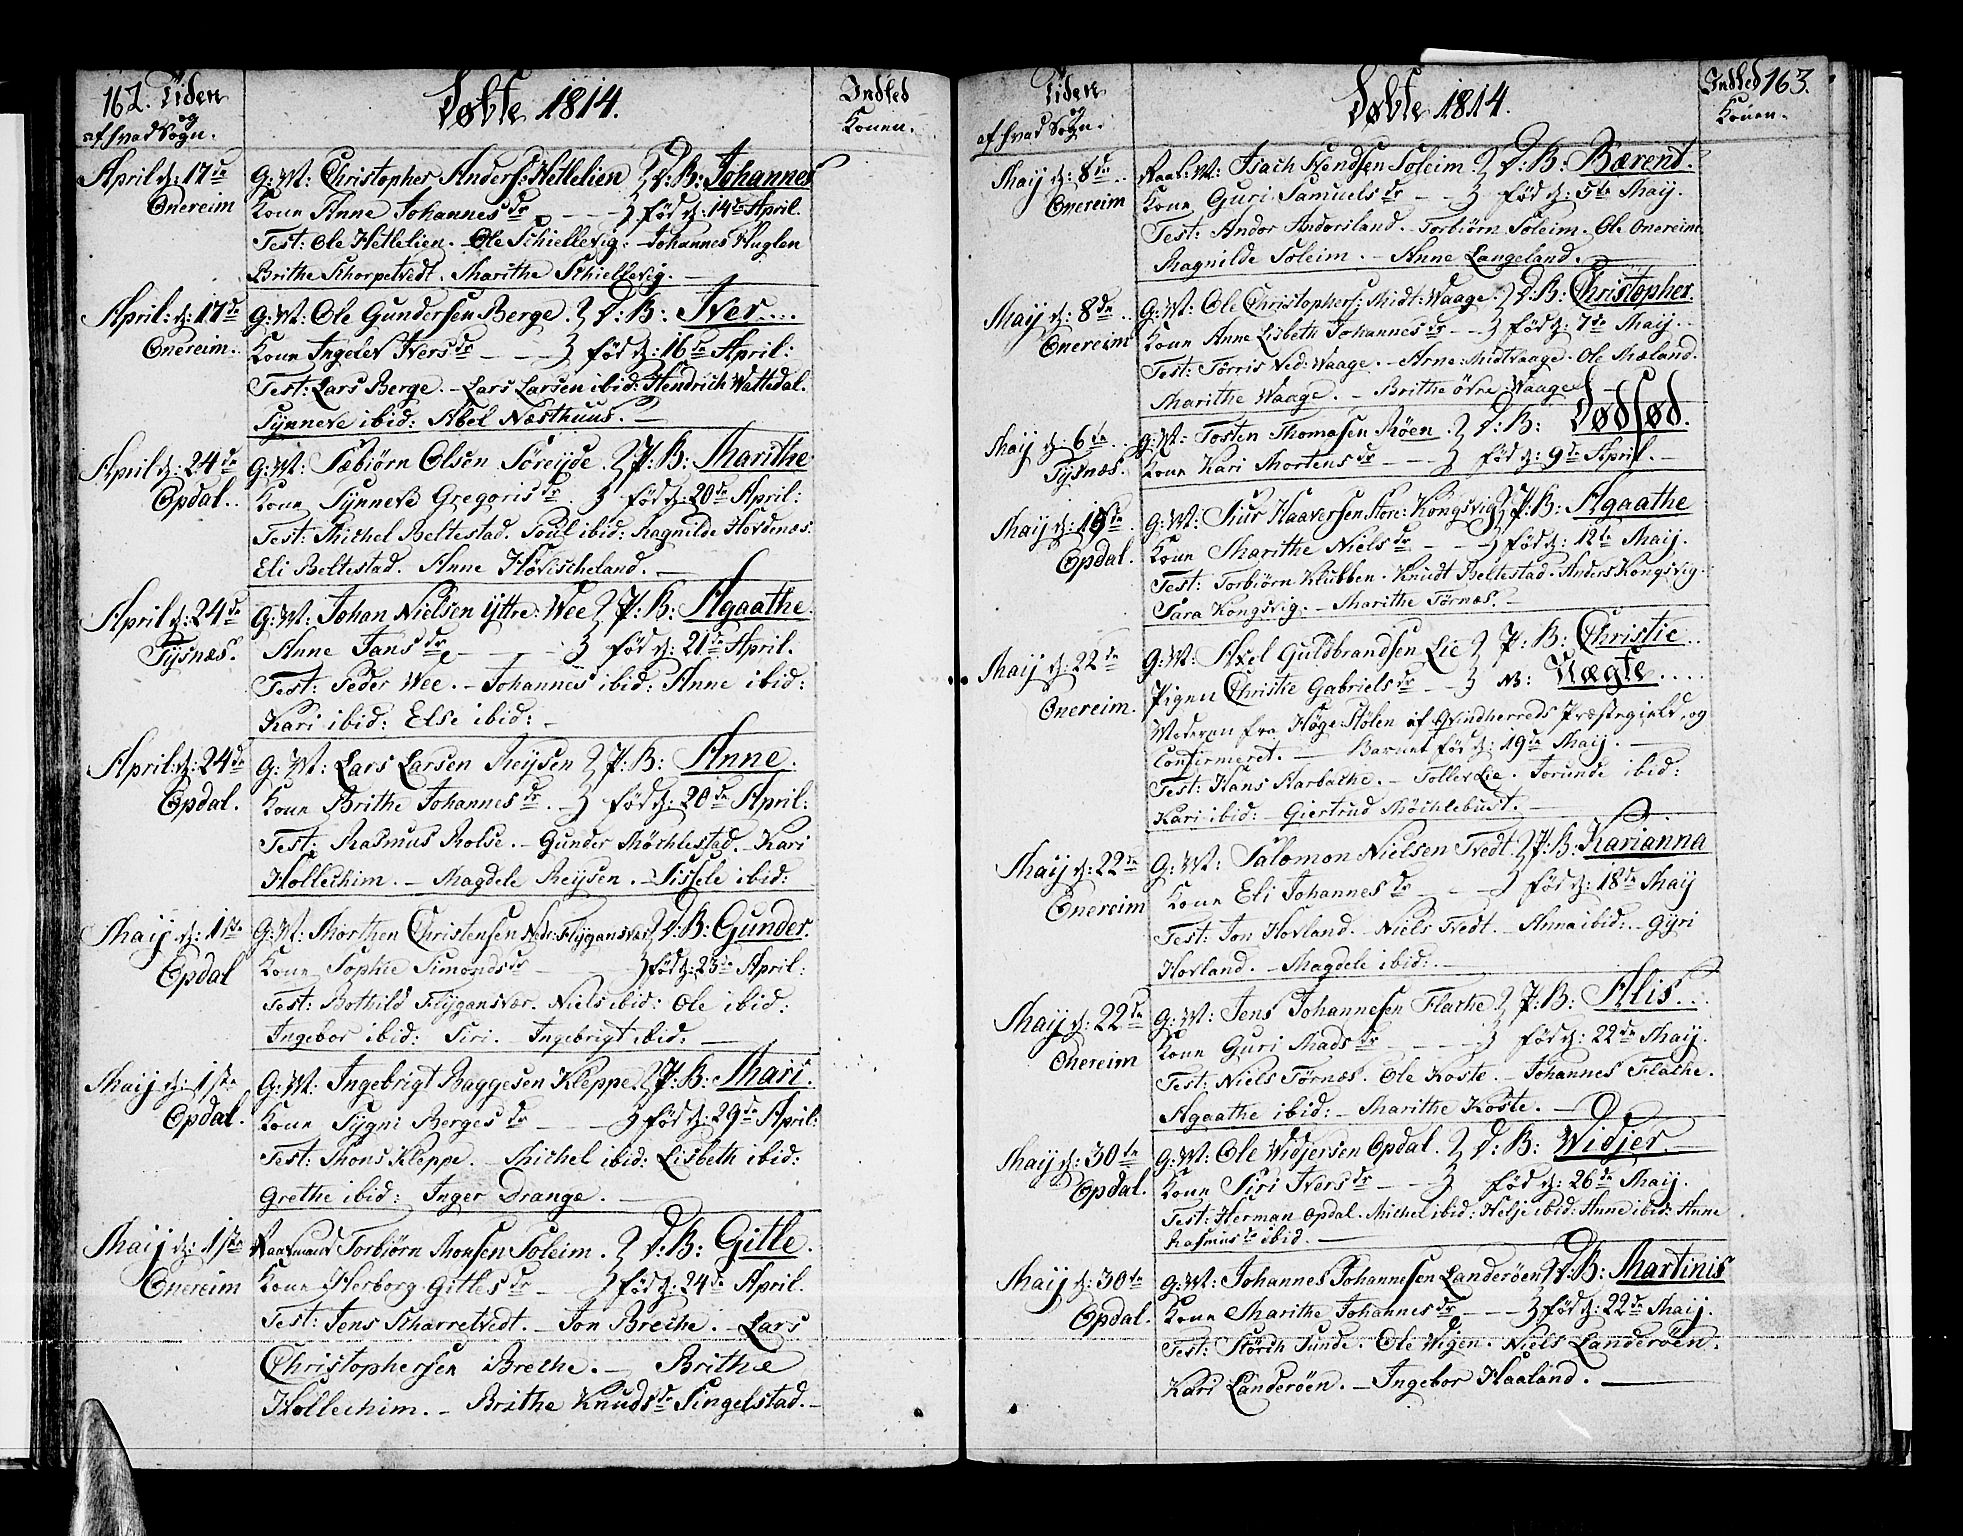 162. Tiden
og
af hvad Sogn.
Döbte 1814.
Indled
Konen.
April d: 17de
Onereim
G: M: Christopher Anders: Hettelien D: B: Johannes
Kone Anne Johannes dr - - föd d: 14de April.
Test: Ole Hettelien. Ole Schiellevig: - Johannes Huglen
Brithe Schorpetvedt. Marithe Schiellevig. -
April: d: 17de
Onereim.
G: M: Ole Gundersen Berge. D: B: Iver....
Kone Ingelev Ivers dr - - föd d: 16de April:
Test: Lars Berge. - Lars Larsen ibid: Hendrich Wattedal.
Synneve ibid: Abel Næsthuus. -
April d: 24de
Opdal.
G: M: Sæbiörn Olsen Söreyde P: B: Marithe
Kone Synneve Gregoris dr. föd d: 20de April:
Test: Michel Beltestad. Poul ibid: Ragnilde Hovdnæs.
Eli Beltestad. Anne Hövischeland. -
April d: 24de
Tysnæs.
G: M: Johan Nielsen Yttre: Wee P: B: Agaathe.
Anne Jans dr - - föd d: 21de April.
Test: Peder Wee. - Johannes ibid: Anne ibid:
Kari ibid: Else ibid: -
April: d: 24de
Opdal.
G: M: Lars Larsen Reysen P: B: Anne.
Kone Brithe Johannes dr. - föd d: 20de April:
Test: Rasmus Rolse. - Gunder Möchlestad. - Kari
Hollechim. - Magdele Reysen. - Sissele ibid:
Maij d: 1ste
Opdal
G: M: Morthen Christensen Nedr: Flygansvær D: B: Gunder.
Kone Sophie Simonds dr - föd d: 23de April:
Test: Bothild Flygansvær. Niels ibid: Ole ibid:
Ingebor ibid: Siri. - Ingebrigt ibid: -
Maij d: 1ste
Opdal.
G: M: Ingebrigt Baggesen Kleppe. P: B: Mari.
Kone Sygni Berges dr - - föd d: 29de April:
Test: Mons Kleppe. - Michel ibid: Lisbeth ibid:
Grethe ibid: Inger Drange. -
Maij d: 1ste
Onereim
Torbiörn Monsen Soleim. D: B: Gitle.
Kone Herborg Gitles dr - föd d: 24de April.
Test: Jens Scharretvedt. - Jon Breche. - Lars
Christophersen Breche. - Brithe
Hollechim. - Brithe Knuds dr Singelstad. -
Tiden
og
af hvad Sogn.
Döbte 1814.
Indled 163.
Konen.
Maij d: 8de
Onereim
M: Isach Svendsen Soleim. D: B: Bærent.
Kone Guri Samuels dr - - föd d: 5te Maij.
Test: Andor Andorsland. Torbiörn Soleim. Ole Onereim
Magnilde Soleim. - Anne Langeland.
Maij d: 8de
Onereim
G: M: Ole Christophers: Midt: Waage. D: B: Christopher.
Kone Anne Lisbeth Johannes dr - - föd d: 7de Maij.
Test: Torris Ned: Waage. - Arne Midtwaage. Ole Mæland.
Marithe Waage. - Brithe övre: Waage
Maij d: 6te
Tysnæs.
G: M: Tosten Thomasen Möen. D: B: Dödföd.
Kone Kari Mortens dr - - föd d: 9de April. -
Maij d: 15te
Opdal.
G: M: Siur Haaversen Store: Kongsvig P: B: Agaathe
Kone Marithe Niels dr - - föd d: 12te Maij.
Test: Torbiörn Klubben. Knudt Beltestad. Anders Kongsvig.
Sara Kongsvig. - Marithe Törnæs. -
Maij d: 22de
Onereim.
G: M: Axel Guldbrandsen Lie P: B: Christie
Pigen Christie Gabriels dr - - NB: Uægte....
Moderen fra Höge Stölen af Qvindherreds Præstegield, og
Confirmeret. - Barnet föd d: 19de Maij. -
Test: Hans Aarbache. - Toller Lie. Jorunde ibid:
Kari ibid: - Giertrud Möchlebust. -
Maij d: 22de
Onereim
G: M: Salomon Nielsen Tvedt. P: B: Karianna
Kone Eli Johannes dr - - föd d: 18de Maij
Test: Jon Hovland. - Niels Tvedt. - Anna ibid: - Gyri
Hovland. - Magdele ibid: -
Maij d: 22de
Onereim
G: M: Jens Johannesen Flache. P: B: Alis...
Kone Guri Mads dr - - föd d: 22de Maij.
Test: Niels Törnæs. Ole Koste. - Johannes Flache.
Agaathe ibid: - Marithe Koste. -
Maij d: 30te
Opdal.
G: M: Ole Widjersen Opdal. D: B: Widjer.
Kone Siri Ivers dr - - föd d: 26de Maij.
Test: Herman Opdal. Michel ibid: Helje ibid: Anne ibid: Anne
Rasmus dr ibid. -
Maij d: 30te
Opdal.
G: M: Johannes Johannesen Landeröen D: B: Martinis
Kone Marithe Johannes dr - - föd d: 22de Maij.
Test: Störch Sunde. Ole Wigen. Niels Landeröen.
Kari Landeröen. - Ingebor Haaland. -